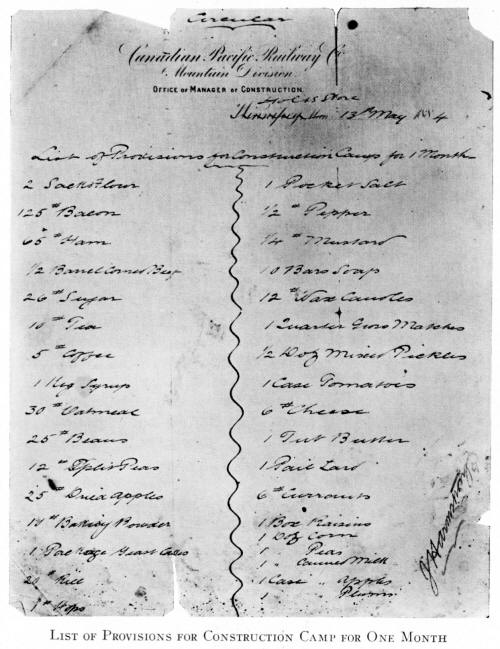 Circular
Canadian Pacific Railway Co
Mountain Division
OFFICE OF MANAGER OF CONSTRUCTION.
Store
13th May 1884
List of Provisions for Construction Camp for 1 Month
2 Sacks Flour
125 # Bacon
65 # Ham
1/2 Barrel Corned Beef
26 # Sugar
10 # Tea
5 # Coffee
1 Keg Syrup
30 # Oatmeal
25 # Beans
12 # Split Peas
25 # Dried Apples
10 # Baking Powder
1 Package Yeast Cakes
20 # Rice
1 # Hops
1 Pocket Salt
1/2 # Pepper
1/4 # Mustard
10 Bars Soap
12 # Wax Candles
1 Quarter Gross Matches
1/2 Doz Mixed Pickles
1 Case Tomatoes
6 # Cheese
1 Tub Butter
1 Pail Lard
6 # Currants
1 Box Raisins
1 Doz Corn
1 " Peas
1 " Canned Milk
1 Case " Apples
1 Plums
LIST OF PROVISIONS FOR CONSTRUCTION CAMP FOR ONE MONTH